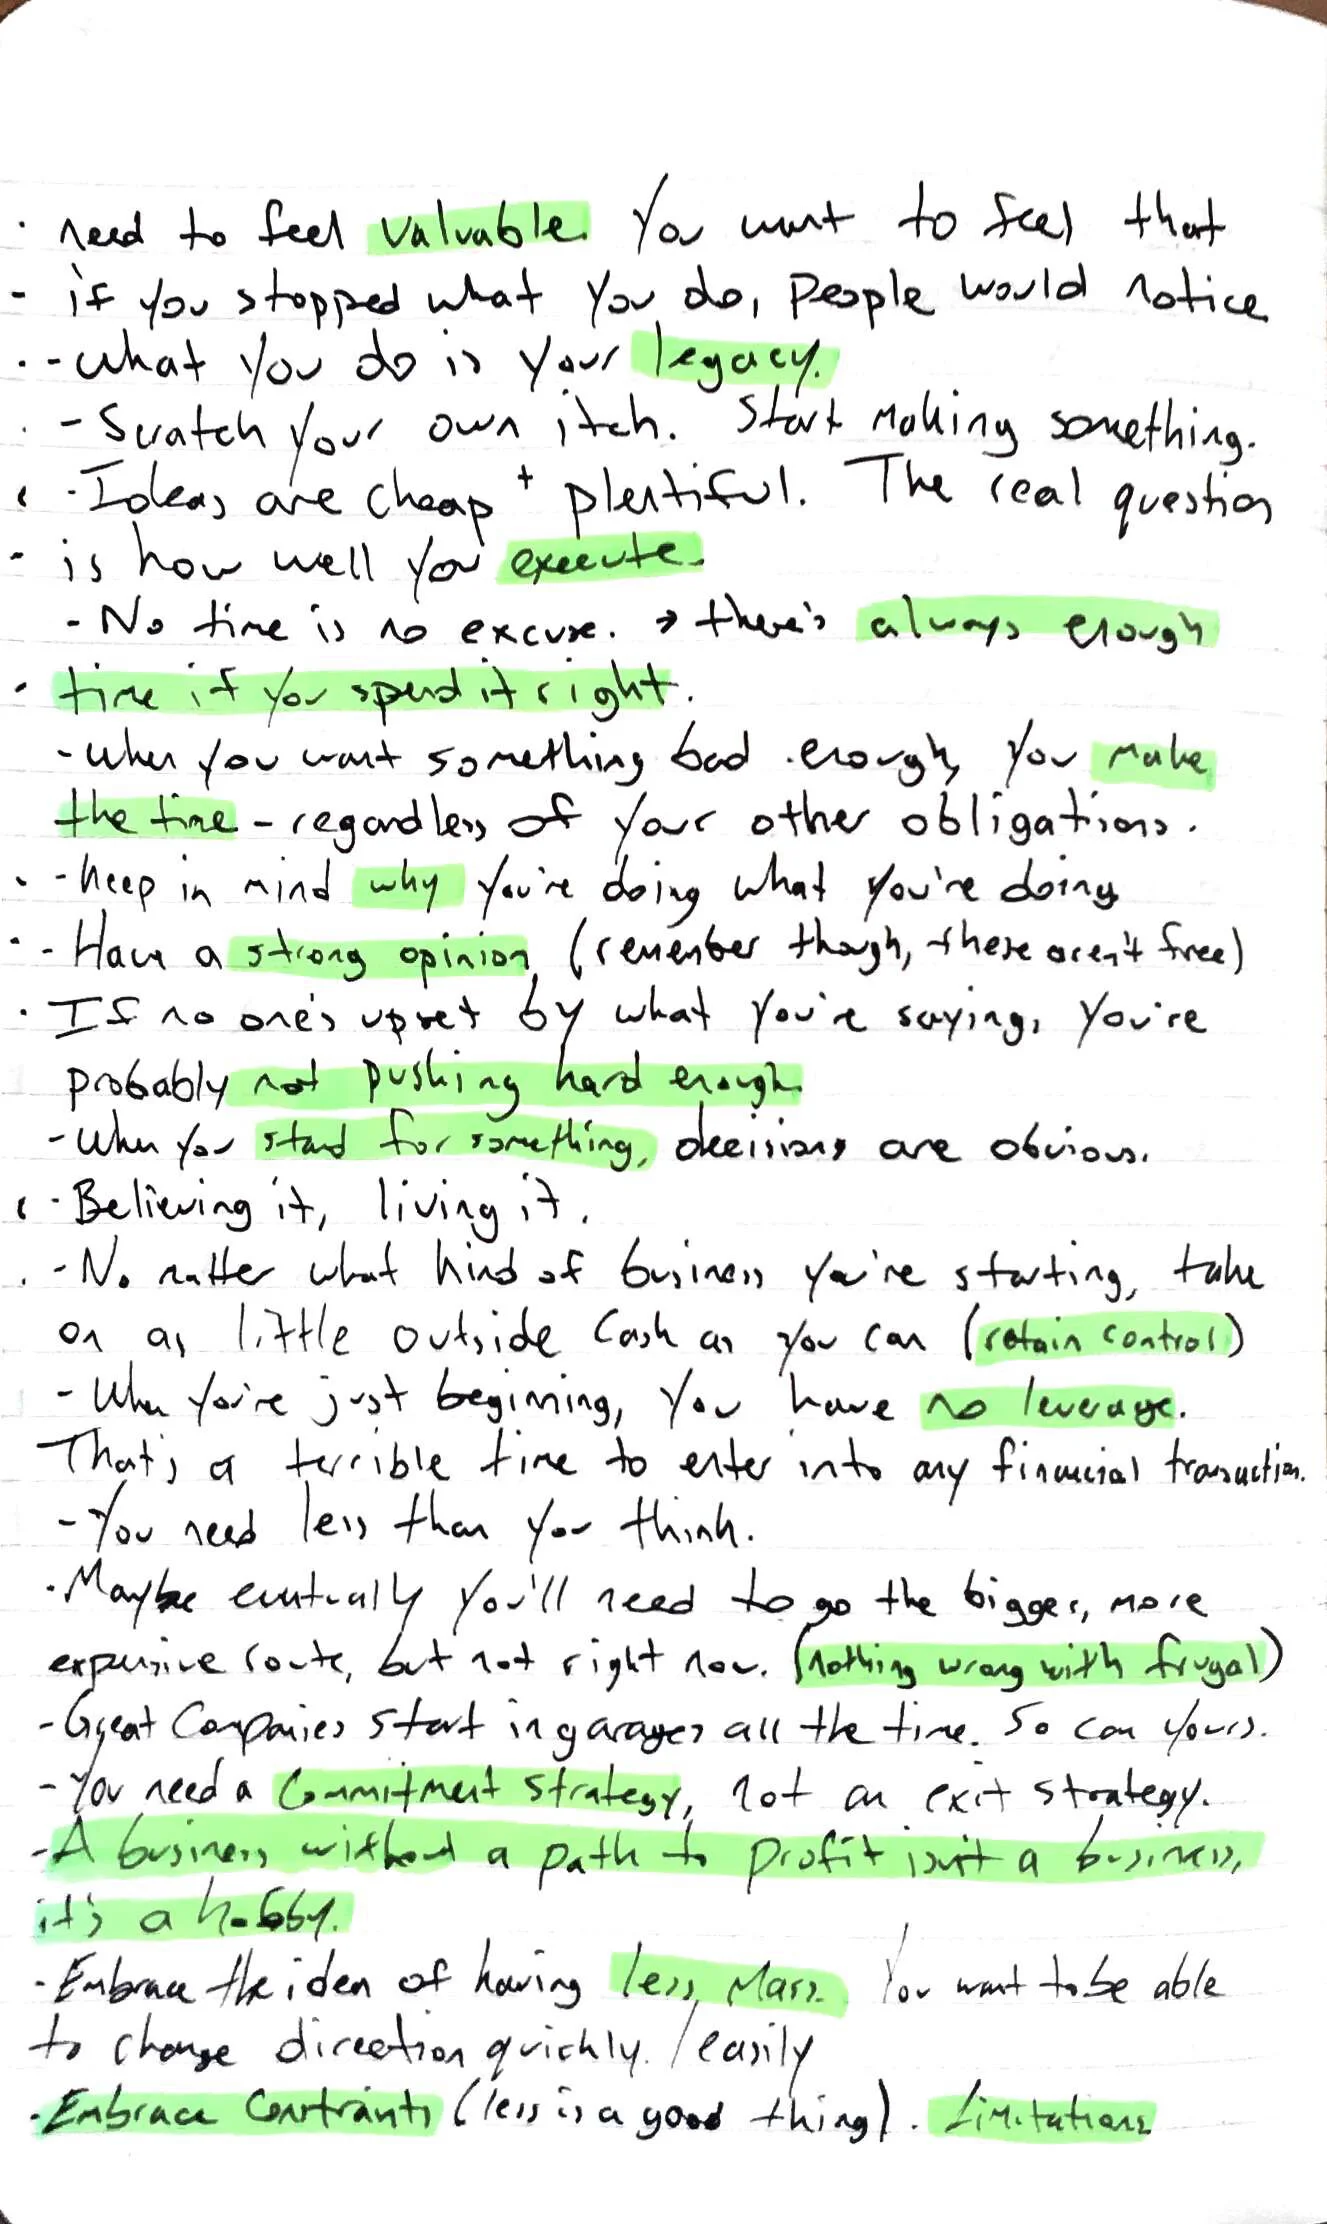 · need to feel valuable. You want to feel that
- if you stopped what you do, people would notice
· - what you do is your legacy.
· - Scratch your own itch. Start making something.
· - Ideas are cheap + plentiful. The real question
- is how well you execute.
- No time is no excuse. → there's always enough
- time if you spend it right.
- when you want something bad enough, you make
the time - regardless of your other obligations.
· - keep in mind why you're doing what you're doing
· - Have a strong opinion (remember though, these aren't free)
· If no one's upset by what you're saying, you're
probably not pushing hard enough.
- when you stand for something, decisions are obvious.
· - Believing it, living it.
· - No matter what kind of business you're starting, take
on as little outside cash as you can (retain control)
- When you're just beginning, you have no leverage.
That's a terrible time to enter into any financial transaction.
- You need less than you think.
· Maybe eventually you'll need to go the bigger, more
expensive route, but not right now. (nothing wrong with frugal)
- Great Companies start in garages all the time. So can yours.
- You need a Commitment strategy, not an exit strategy.
- A business without a path to profit isn't a business,
it's a hobby.
- Embrace the idea of having less mass. You want to be able
to change direction quickly. /easily
- Embrace Contraints (less is a good thing). Limitations